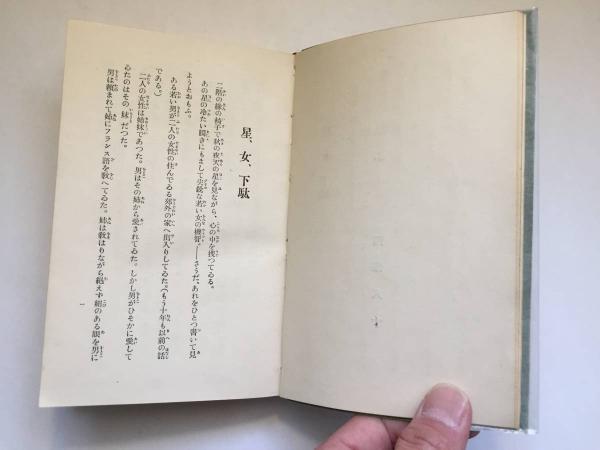 星、女、下駄
二階の縁の椅子で秋の夜天の星を見ながら、心の中を捜つてゐる。
あの星の冷たい瞬きにもまして尖鋭な若い女の機智。――さうだ、あれをひとつ書いて見
ようとおもふ。
ある若い男が二人の女性の住んでゐる郊外の家へ出入りしてゐた。(もう十年も以前の話
である。)
二人の女性は姉妹であつた。男はその姉から愛されてゐた。しかし男がひそかに愛して
ゐたのはその妹だつた。
男は頼まれて姉にフランス語を教へてゐた。姉は教はりながら絶えず媚のある眼を男に
一